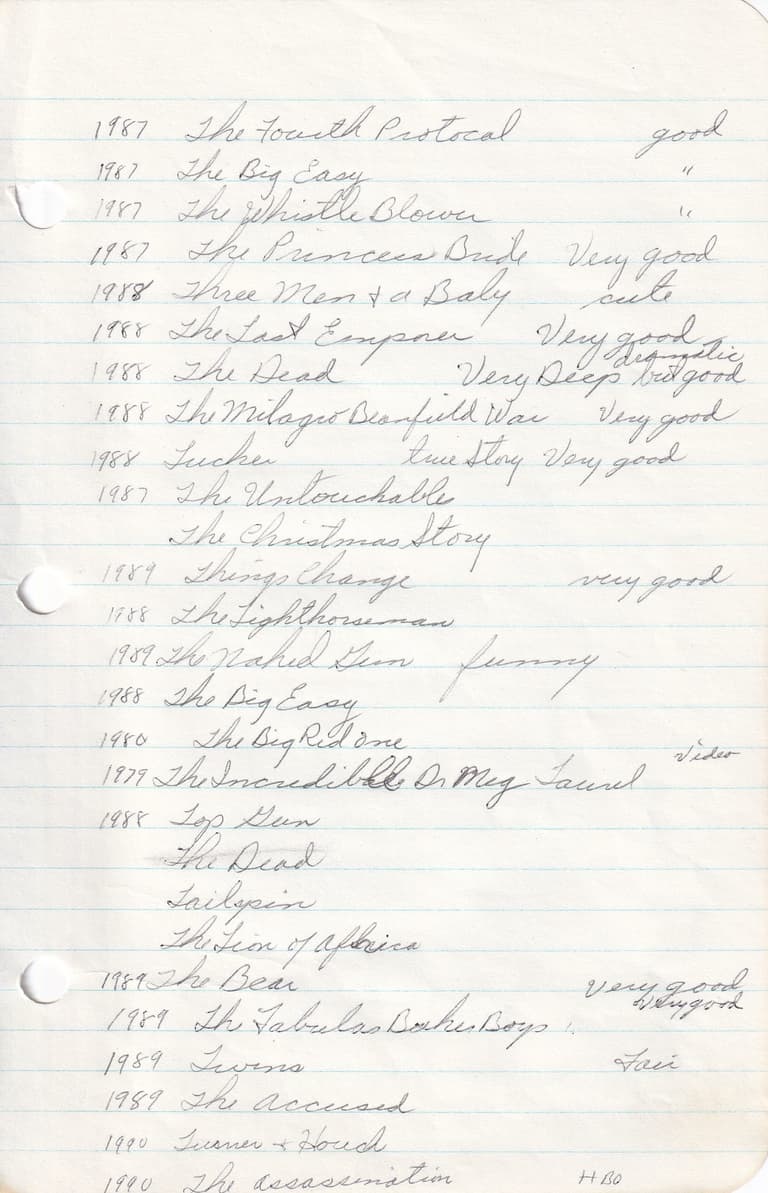 1987 The Fourth Protocal good
1987 The Big Easy "
1987 The Whistle Blower "
1987 The Princess Bride Very good
1988 Three Men & a Baby cute
1988 The Last Emporer Very good
1988 The Dead Very Deep dramatic but good
1988 The Milagro Beanfield War Very good
1988 Tucker true Story Very good
1987 The Untouchables
The Christmas Story
1989 Things Change very good
1988 The Lighthorseman
1989 The Naked Gun funny
1988 The Big Easy
1980 The Big Red One
1979 The Incredible Dr Meg Laurel Video
1988 Top Gun
The Dead
Tailspin
The Lion of Africa
1989 The Bear very good
1989 Th Fabulas Baker Boys very good
1989 Twins Fair
1989 The Accused
1990 Turner & Hooch
1990 The assassination HBO